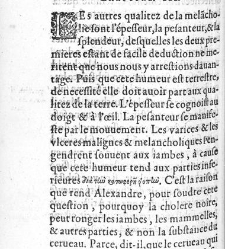 LEs autres qualitez de la melãcho-
lie sont l'épesseur, la pesanteur, & la
splendeur, desquelles les deux pre-
mieres estant de facile deduction ne me-
ritent que nous nous y arrestions dauan-
tage. Puis que cette humeur est terrestre,
de necessité elle doit auoir part aux qua-
litez de la terre. L'épesseur se cognoist au
doigt & à l'œil. La pesanteur se manife-
ste par le mouuement. Les varices & les
vlceres malignes & melancholiques ren-
gendrent souuent aux iambes, à cause
que cette humeur tend tousiours aux par-
ties inferieures C'est la raison
que rend Alexandre, pour soudre cette
question, pourquoy la cholere noire,
peut ronger les iambes, les mammelles,
& autres parties, & non la substance du
cerueau. Parce, dit-il, que le cerueau qui